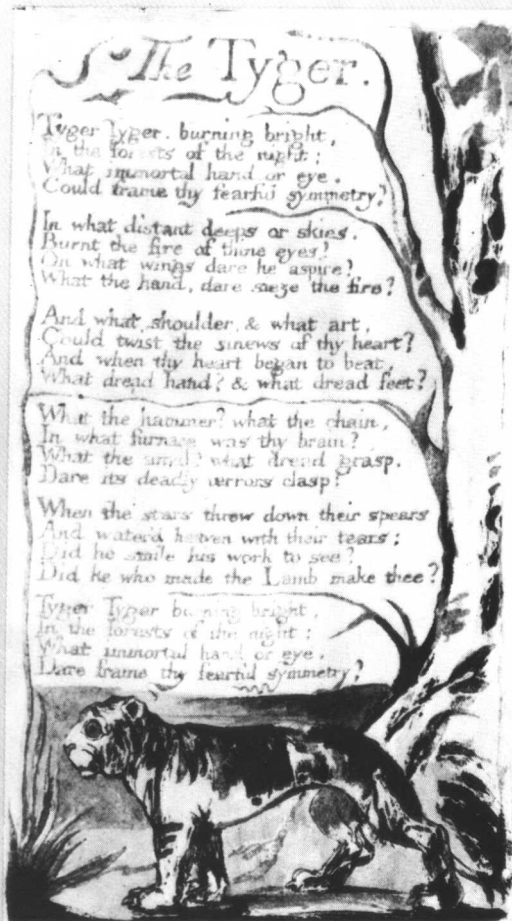 The Tyger.
Tyger Tyger, burning bright,
In the forests of the night;
What immortal hand or eye,
Could frame thy fearful symmetry?
In what distant deeps or skies,
Burnt the fire of thine eyes?
On what wings dare he aspire?
What the hand, dare sieze the fire?
And what shoulder, & what art,
Could twist the sinews of thy heart?
And when thy heart began to beat,
What dread hand? & what dread feet?
What the hammer? what the chain,
In what furnace was thy brain?
What the anvil? what dread grasp,
Dare its deadly terrors clasp?
When the stars threw down their spears
And water'd heaven with their tears:
Did he smile his work to see?
Did he who made the Lamb make thee?
Tyger Tyger burning bright,
In the forests of the night:
What immortal hand or eye,
Dare frame thy fearful symmetry?